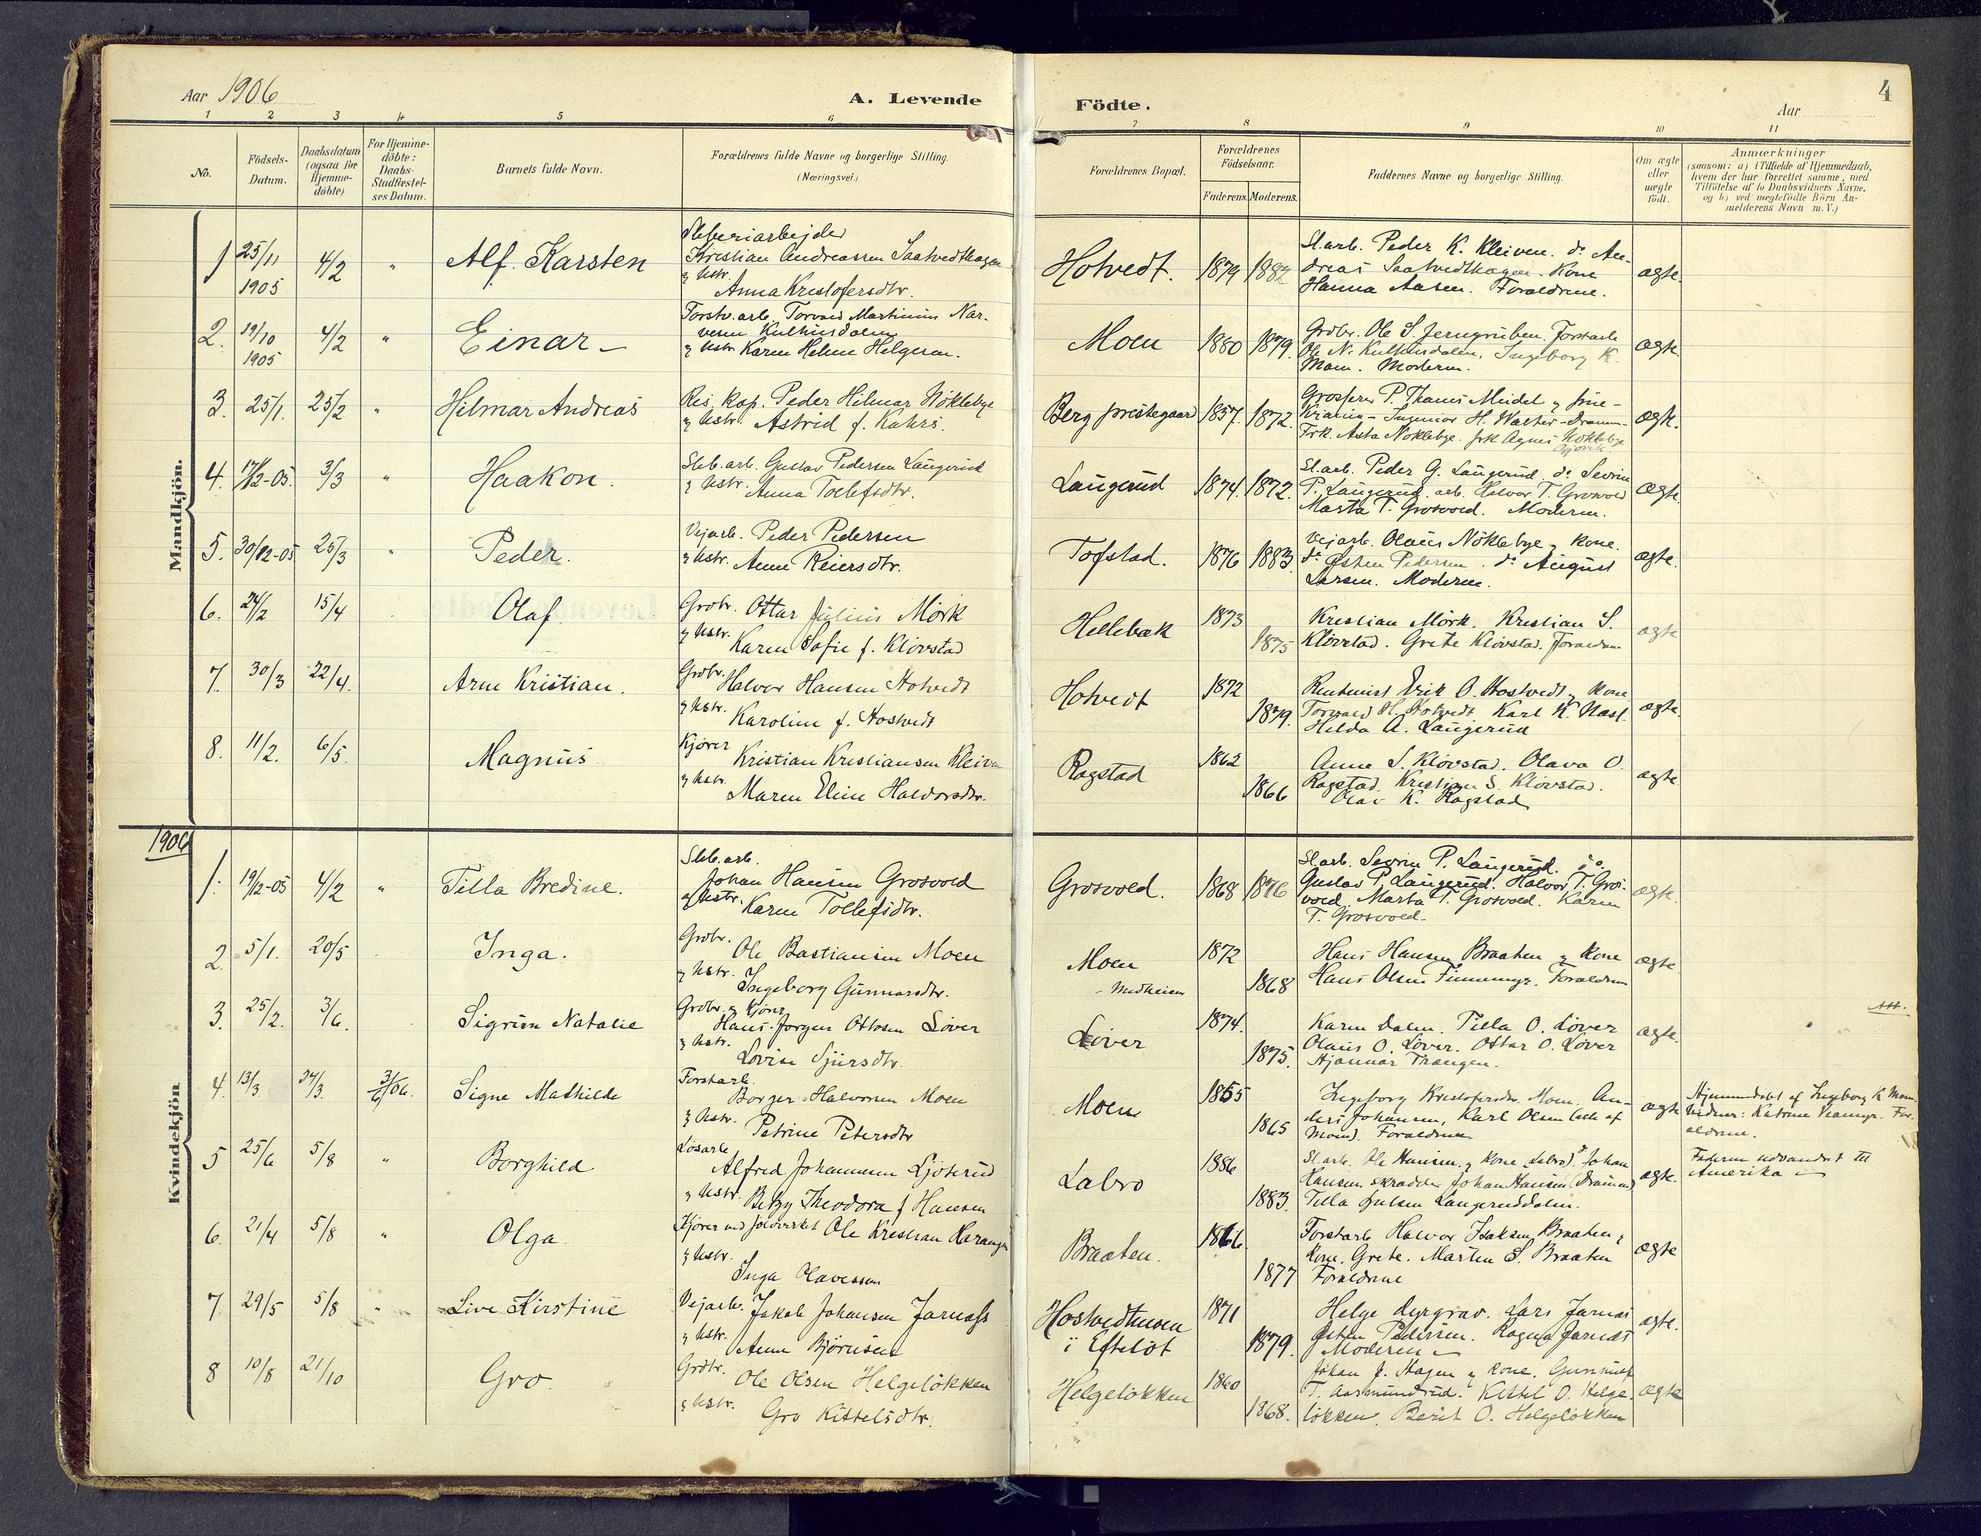 Aar 1906
A. Levende
Födte.
4
Aar
1 2 3 4 5 6 7 8 9 10 11
No.
Födsels-
Datum.
Daabsdatum
(ogsaa for
Hjemme-
döbte)
For Hjemme-
döbte:
Daabs-
Stadfæstel-
ses Datum.
Barnets fulde Navn.
Forældrenes fulde Navne og borgerlige Stilling.
(Næringsvei.)
Forældrenes Bopæl.
Forældrenes
Födselsaar.
Faderens. Moderens.
Faddernes Navne og borgerlige Stilling.
Om ægte
eller
uægte
födt.
Anmærkninger
(saasom: a) i Tilfælde af Hjemmedaab,
hvem der har forrettet samme, med
Tilföielse af to Daabsvidners Navne,
og b) ved uægtefödte Börn An-
melderens Navn m. V.)
Mandkjön.
1 25/11 1905 4/2 " Alf. Karsten
Kristian Andreassen Saatvedthagen
& Hstr.
Anna Kristofersdtr.
Hotvedt. 1879 1882
Sl.arb. Peder K. Kleiven. do An-
dreas Saatvedthagen. Kone
Hanna Aasen. Forældrene. ægte.
2. 19/10 1905 4/2 " Einar
Forstv. arb. Torvald Martinius Nar-
vesen Kulhusdalen
& Hstr. Karen Helene Helgesen.
Moen 1880 1879.
Grdbr. Ole S. Jerngruben. Forstarb
Ole N. Kulhusdalen, Ingeborg K.
Moen. Moderen. ægte.
3. 25/1. 25/2 " Hilmar Andreas
Res. Kap. Peder Hilmar Nöklebye
& Hstr. Astrid f. Kahrs.
Berg prestegaard 1857. 1872.
Frk. Asta Nöklebye. frk Agnes Nöklebye ægte.
4. 17/12-05. 3/3 " Haakon.
Sleb. arb. Gustav Pedersen Langerud
& Hstr. Anna Tollefsdtr.
Langerud 1874. 1872.
Sl.arb. Peder G. Langerud. do Sevrin
P. Langerud. arb. Halvor T. Grosvold
Marta T. Grosvold. Moderen. ægte.
5. 30/12-05 25/3 " Peder.
Vejarb. Peder Pedersen
& Hstr. Anne Reiersdtr.
Tofstad. 1876 1883.
Vejarb. Olaus Nöklebye & Kone.
do Østen Pedersen. do August
Larsen. Moderen. ægte.
6. 24/2 15/4 Olaf
Grdbr. Ottar Julius Mörk
& Hstr.
Karen Sofie f. Klövstad
Hellebæk 1873 1875
Kristian Mörk. Kristian S.
Klövstad. Grete Klövstad. Forældrene ægte
7. 30/3 22/4. Arne Kristian.
Grdbr. Halvor Hansen Hotvedt
& Hstr.
Karoline f. Hostvedt
Hotvedt 1872 1879.
Erik O. Hostvedt & Kone
Torvald H. Hotvedt Karl K. Næsl.
Hilda A. Langerud ægte.
8. 11/2. 6/5. Magnus
Kjører Kristian Kristiansen Kleiven
& Hstr.
Maren Eline Halvorsdtr.
Ragstad 1862 1866
Anne S. Klövstad. Olava O.
Ragstad. Kristian S. Klövstad.
Olav K. Ragstad ægte
1906
Kvindekjön
1. 19/12-05 4/2 " Tilla Bredine.
Sleb. arb.
Johan Hansen Grosvold
& Hstr. Karen Tollefsdtr.
Grosvold. 1868 1876
Sl.arb. Sevrin P. Langerud. do
Gustav P. Langerud. Halvor T. Gros-
vold. Marta T. Grosvold. Karen
T. Grosvold. ægte.
2. 5/1. 20/5 Inga.
Grdbr. Ole Bastiansen Moen
& Hstr.
Ingeborg Gunnarsdtr.
Moen
- Medheien 1872 1868
Hans Hansen Braaten & Kone
Hans Olsen Forældrene ægte.
3. 25/2. 3/6. Sigrun Natalie
Grdbr.
Hans Jørgen Ottosen Löver
& Hstr.
Lovise Sjursdtr.
Löver 1874. 1875.
Karen Dalen. Tilla O. Löver
Olaus O. Löver. Ottar O. Löver
Hjalmar Trængen. ægte.
Att.
4. 13/3. 24/3. 3/6 06. Signe Mathilde
Forstarb.
Borger Halvorsen Moen
& Hstr. Petrine Petersdtr
Moen 1855 1865
Ingeborg Kristofersdtr. Moen. An-
ders Johansen, Karl Olsen (alle af
Moen). Forældrene ægte
Hjemmedøbt af Ingeborg K Moen.
Vidner: Katrine For-
ældrene.
5 25/6 5/8 " Borghild
Løsarb
Alfred Johannesen Ljøterud
& Hstr. Betzy Theodora f Hansen
Labro 1886 1883.
Sl. arb. Ole Hansen & Kone (Labro) Johan
Hansen, skrædder Johan Hansen (Drammen)
Tilla Julsen Langeruddalen. ægte.
Faderen udvandret til
Amerika
6. 21/4 5/8 " Olga.
Kjører ved Sølvverket Ole Kristian
& Hstr.
Inga Olavessen
Braaten. 1866 1877
Forstarb Halvor Isaksen Braaten &
Kone, Grete. Marten S. Braaten
Forældrene ægte
7. 29/5 5/8 " Live Kirstine
Vejarb. Jakob Johansen Jarnæss
& Hstr.
Anne Bjørnsen
Hostvedtmoen
i Efteløt 1871 1879.
Helge Dyrgrav. Lars Jarnæs
Østen Pedersen. Ragna Jarnæs
Moderen ægte.
8 10/8 21/10 Gro.
Grdbr.
Ole Olsen Helgeløkken
& Hstr.
Gro Kittelsdtr.
Helgeløkken 1860 1868.
Johan J. Hagen & Kone. Gunnulf
T. Aasmundrud. Kittel O. Helge-
løkken. Berit O. Helgeløkken ægte